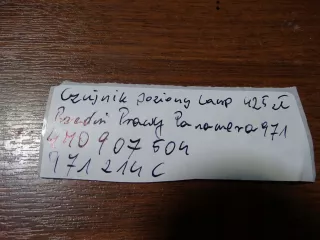 Czujnik Poziomu Lamp 425 zł
Przedni Prawy Panamera 971
4M0 907 504
971 214 C